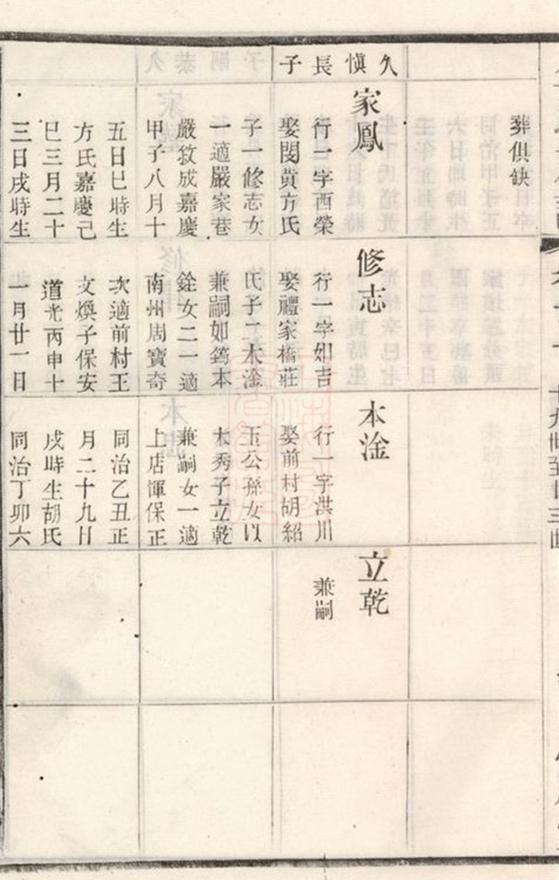 葬俱缺
久愼長子
家鳳
行一字西榮
娶閔黄方氏
子一修志女
一適嚴家巷
嚴敎成嘉慶
甲子八月十
五日巳時生
方氏嘉慶己
巳三月二十
三日戌時生
修志
行一字如吉
娶禮家橋莊
氏子二本淦
兼嗣如篤本
銓女二一適
南州周寶奇
次適前村王
文煥子保安
道光丙申十
一月廿一日
本淦
行一字淇川
娶前村胡紹
玉公孫女以
本秀子立乾
兼嗣女一適
上店惲保正
同治乙丑正
月二十九日
戌時生胡氏
同治丁卯六
立乾
兼嗣